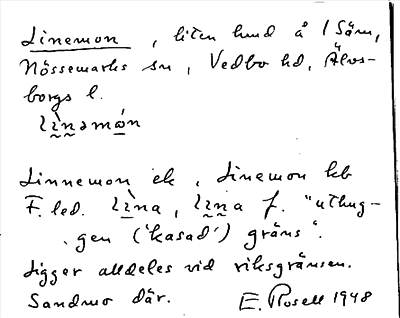 Linemon, liten lund å l Säm,
Nössemarks sn, Vedbo hd, Älvs-
borgs l.
lìnəmón
Linnemon ek, Linemon kb
F. led. lìna, lina f. "uthug-
gen ('kasad') gräns".
Ligger alldeles vid riksgränsen.
Sandmo där. E. Rosell 1948